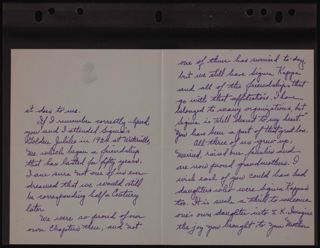 it does to us.
If I remember correctly - both
you and I attended Sigma's
Golden Jubilee in 1924 at Waterville,
Me. which began a friendship
that has lasted for fifty years.
I am sure not one of us ever
dreamed that we would still
be corresponding half a Century
later.
We were so proud of our
own Chapters then, and not
one of them has survived to-day
but we still have Sigma Kappa
and all of the friendships that
go with that affiliation. I have
belonged to many organizations, but
Sigma is still dearest to my heart.
You have been a part of that, dear
All three of us grew up,
married, raised our families and
are now proud grandmothers. I
wish each of you could have had
daughters who were Sigma Kappas
too. It is such a thrill to welcome
one's own daughter into Σ K. Imagine
the joy you brought to your Mother